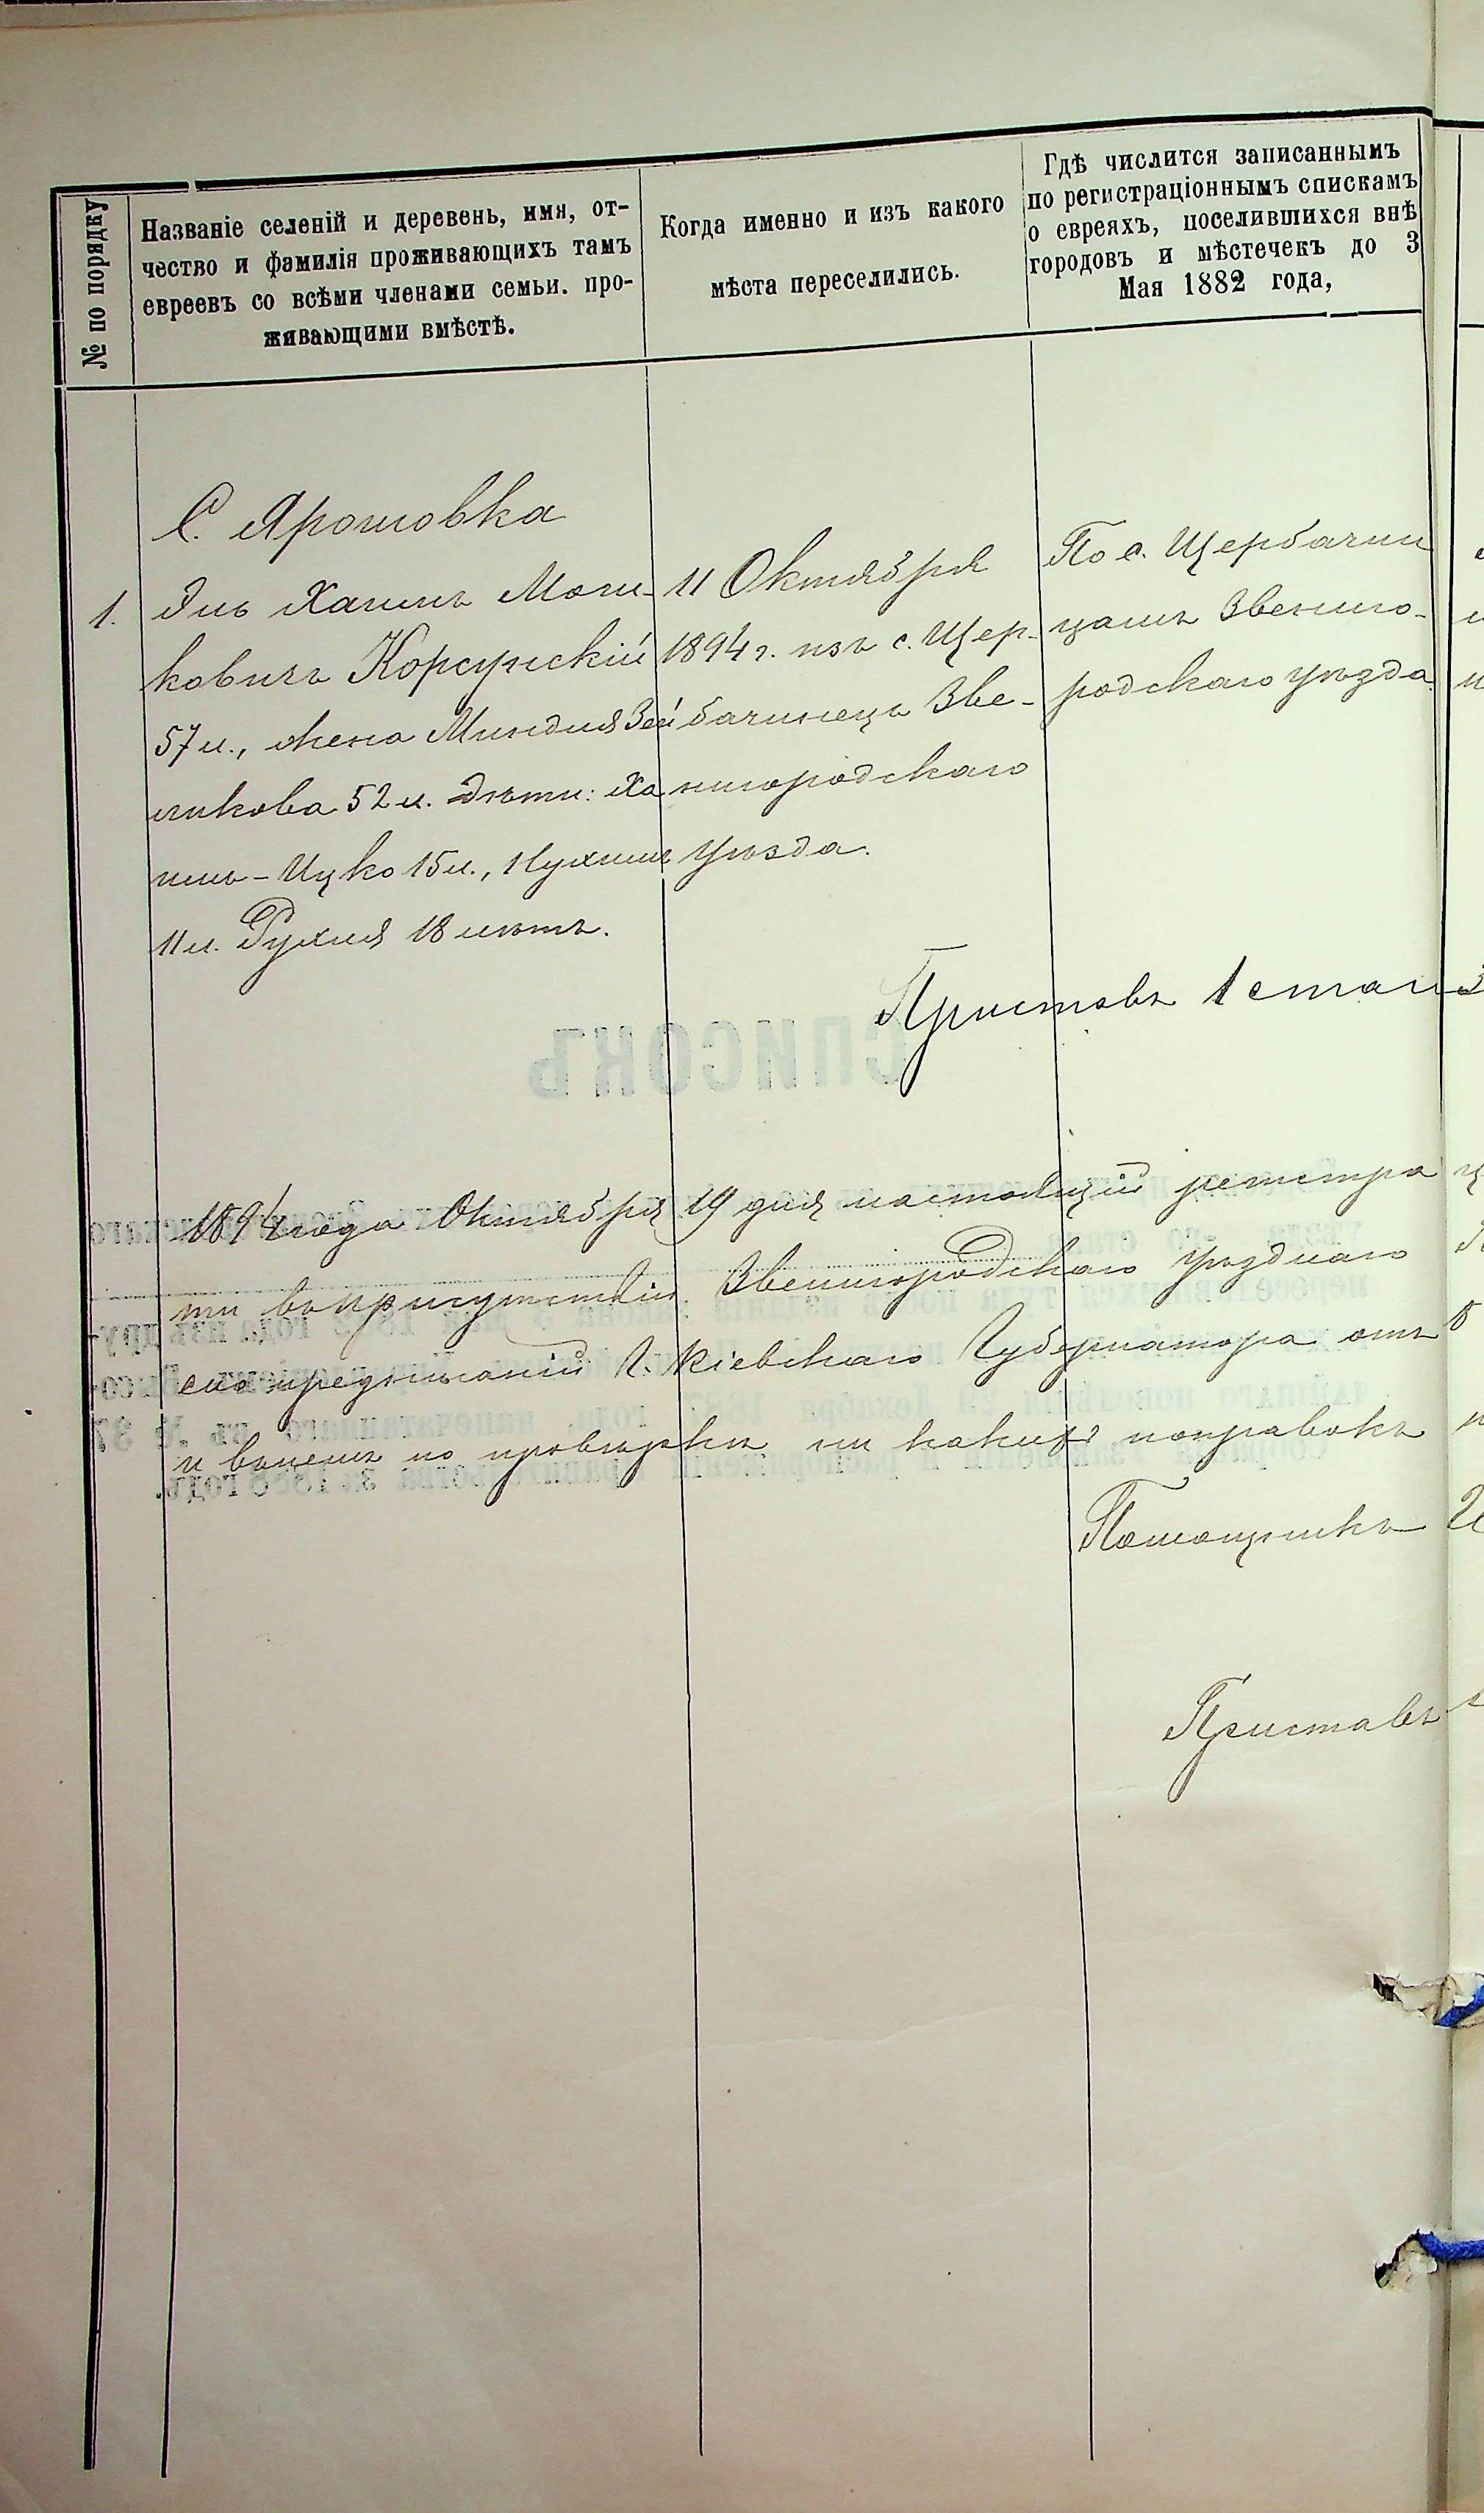 № по порядку
Названіе селеній и деревень, имя, от-
чество и фамилія проживающихъ тамъ
евреевъ со всѣми членами семьи. про-
живающими вмѣстѣ.
Когда именно и изъ какого
мѣста переселились.
Гдѣ числится записаннымъ
по регистраціоннымъ спискамъ
о евреяхъ, поселившихся внѣ
городовъ и мѣстечекъ до 3
Мая 1882 года,
С. Ярошовка
1.
Эль Хаимъ Мош-
ковичъ Корсунскій
57 л., жена Миндля Зей
ликова 52 л. Дѣти: Ха
имъ-Ицко 15 л., Нухимъ
11 л. Рухля 18 лѣтъ.
11 Октября
1894 г. изъ с. Щер-
бачинецъ Зве-
нигородскаго
уѣзда.
По с. Щербачин
цамъ Звениго-
родскаго уѣзда
Приставъ 1 стана
СПИСОКЪ
1894 года Октября 19 дня настоящій регистра
ти въ присутствіи Звенигородскаго уѣзднаго
предписанія Г. Кіевскаго Губернатора отъ
и въ немъ по провѣркѣ ни какихъ поправокъ
Помощникъ
Приставъ